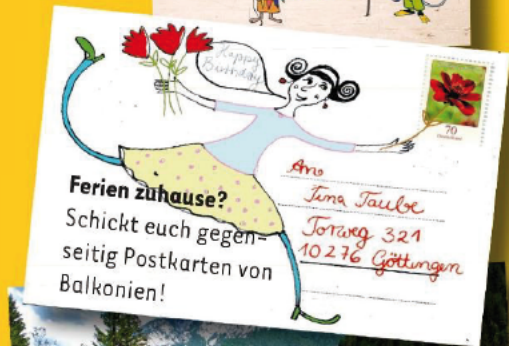 Happy
Birthday
70
An
Tina Taube
Torweg 321
10276 Göttingen
Ferien zuhause?
Schickt euch gegen-
seitig Postkarten von
Balkonien!